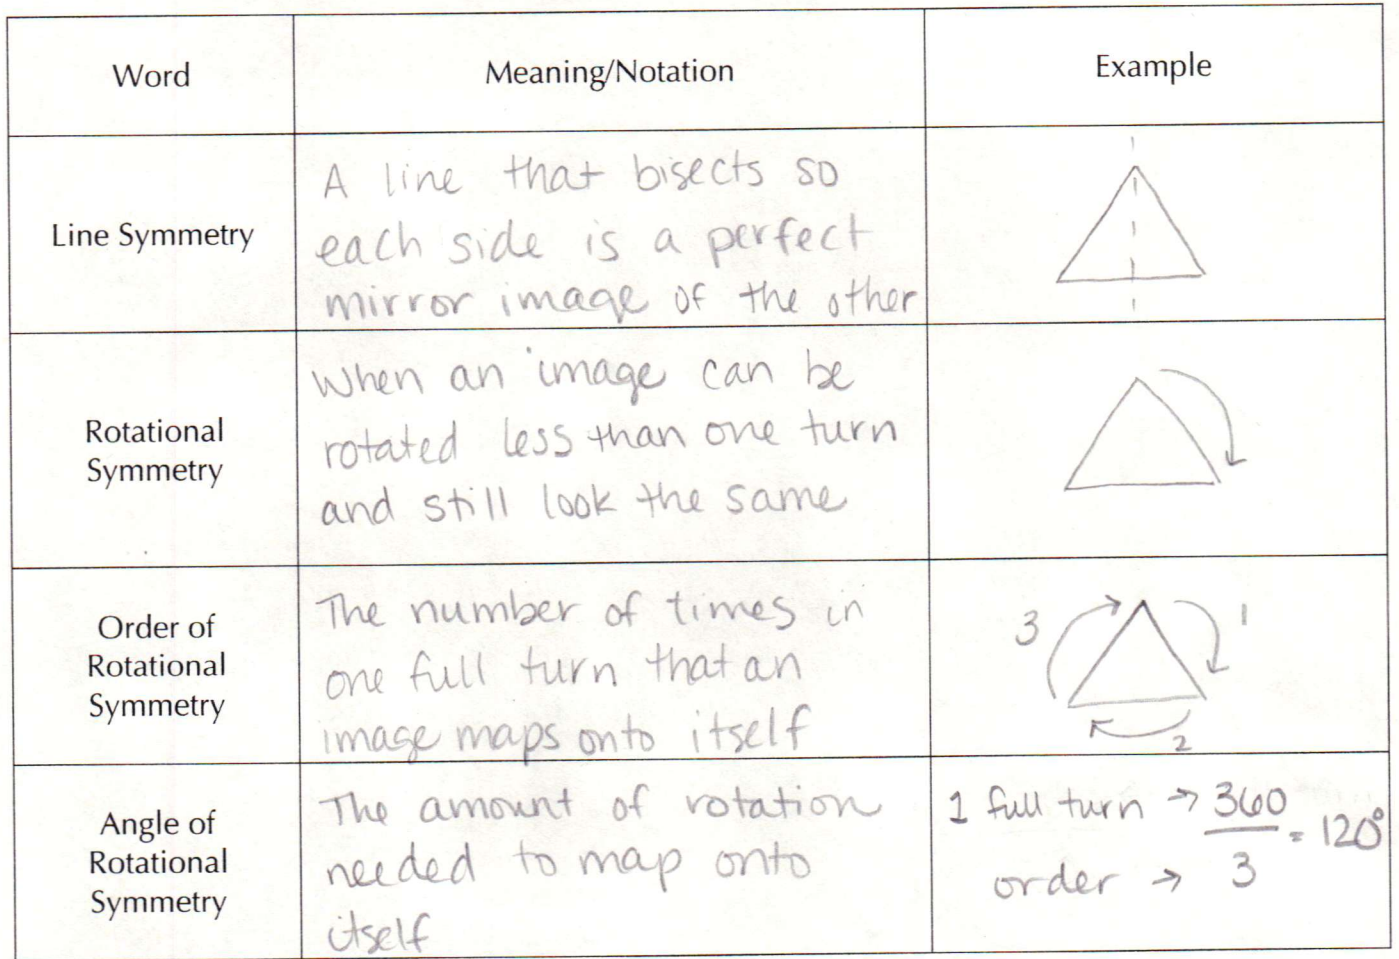 Word
Meaning/Notation
Example
Line Symmetry
A line that bisects so
each side is a perfect
mirror image of the other
Rotational
Symmetry
When an image can be
rotated less than one turn
and still look the same
Order of
Rotational
Symmetry
The number of times in
one full turn that an
image maps onto itself
3
1
2
Angle of
Rotational
Symmetry
The amount of rotation
needed to map onto
itself
1 full turn → 360
= 120°
order → 3